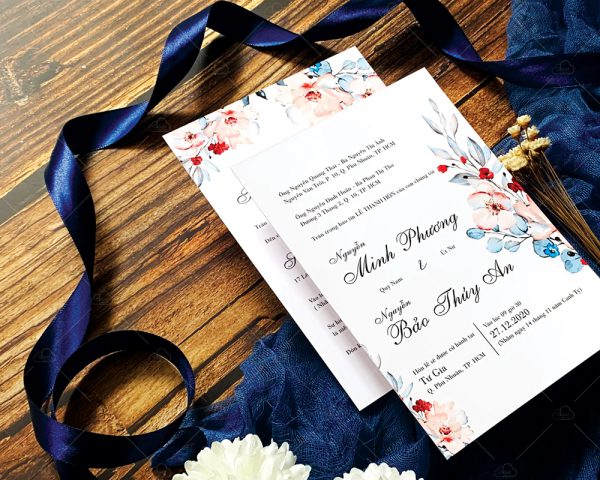 Ông Nguyễn Quang Thái - Bà Nguyễn Thị Ánh
Nguyễn Văn Trỗi, P. 10, Q. Phú Nhuận, TP. HCM
Ông Nguyễn Đình Huân - Bà Phan Thị Thơ
Đường 3 Tháng 2, Q. 10, TP. HCM
Trân trọng báo tin LỄ THÀNH HÔN của con chúng tôi
Nguyễn
Minh Phương
Quý Nam
&
Út Nữ
Nguyễn
Bảo Thúy An
Hôn lễ sẽ được cử hành tại
Tư Gia
Q. Phú Nhuận, TP. HCM
Vào lúc 09 giờ 30
27.12.2020
(Nhằm ngày 14 tháng 11 năm Canh Tý)